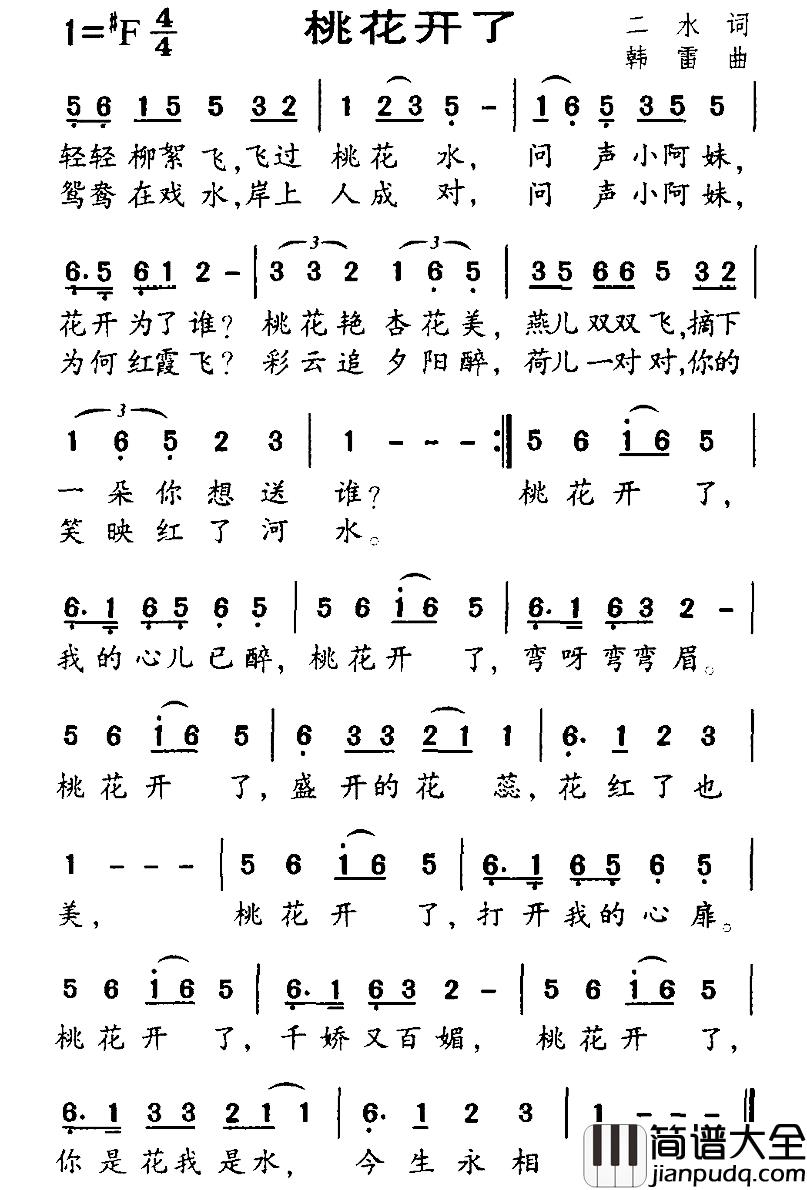 桃花开了
1=#F 4/4
二水词
韩雷曲
5 6 1 5 5 3 2 | 1 2 3 5 - | 1 6 5 3 5 5 |
轻轻柳絮飞,飞过 桃花 水, 问 声小阿妹,
鸳鸯在戏水,岸上 人成 对, 问 声小阿妹,
6. 5 6 1 2 - | 3 3 2 1 6 5 | 3 5 6 6 5 3 2 |
花开为了谁? 桃花艳 杏花美, 燕儿双双飞,摘下
为何红霞飞? 彩云追 夕阳醉, 荷儿一对对,你的
1 6 5 2 3 | 1 - - - :| 5 6 i 6 5 |
一朵你想送 谁? 桃花开 了,
笑映红了河 水。
6. 1 6 5 6 5 | 5 6 i 6 5 | 6. 1 6 3 2 - |
我的心儿已醉, 桃花开 了, 弯呀弯弯眉。
5 6 i 6 5 | 6 3 3 2 1 1 | 6. 1 2 3 |
桃花开 了, 盛开的花 蕊, 花红了也
1 - - - | 5 6 i 6 5 | 6. 1 6 5 6 5 |
美, 桃花开 了, 打开我的心 扉。
5 6 i 6 5 | 6. 1 6 3 2 - | 5 6 i 6 5 |
桃花开 了, 千娇又百媚, 桃花开 了,
6. 1 3 3 2 1 1 | 6. 1 2 3 | 1 - - - ‖
你是花我是水, 今生永相
简谱大全
jianpudq.com